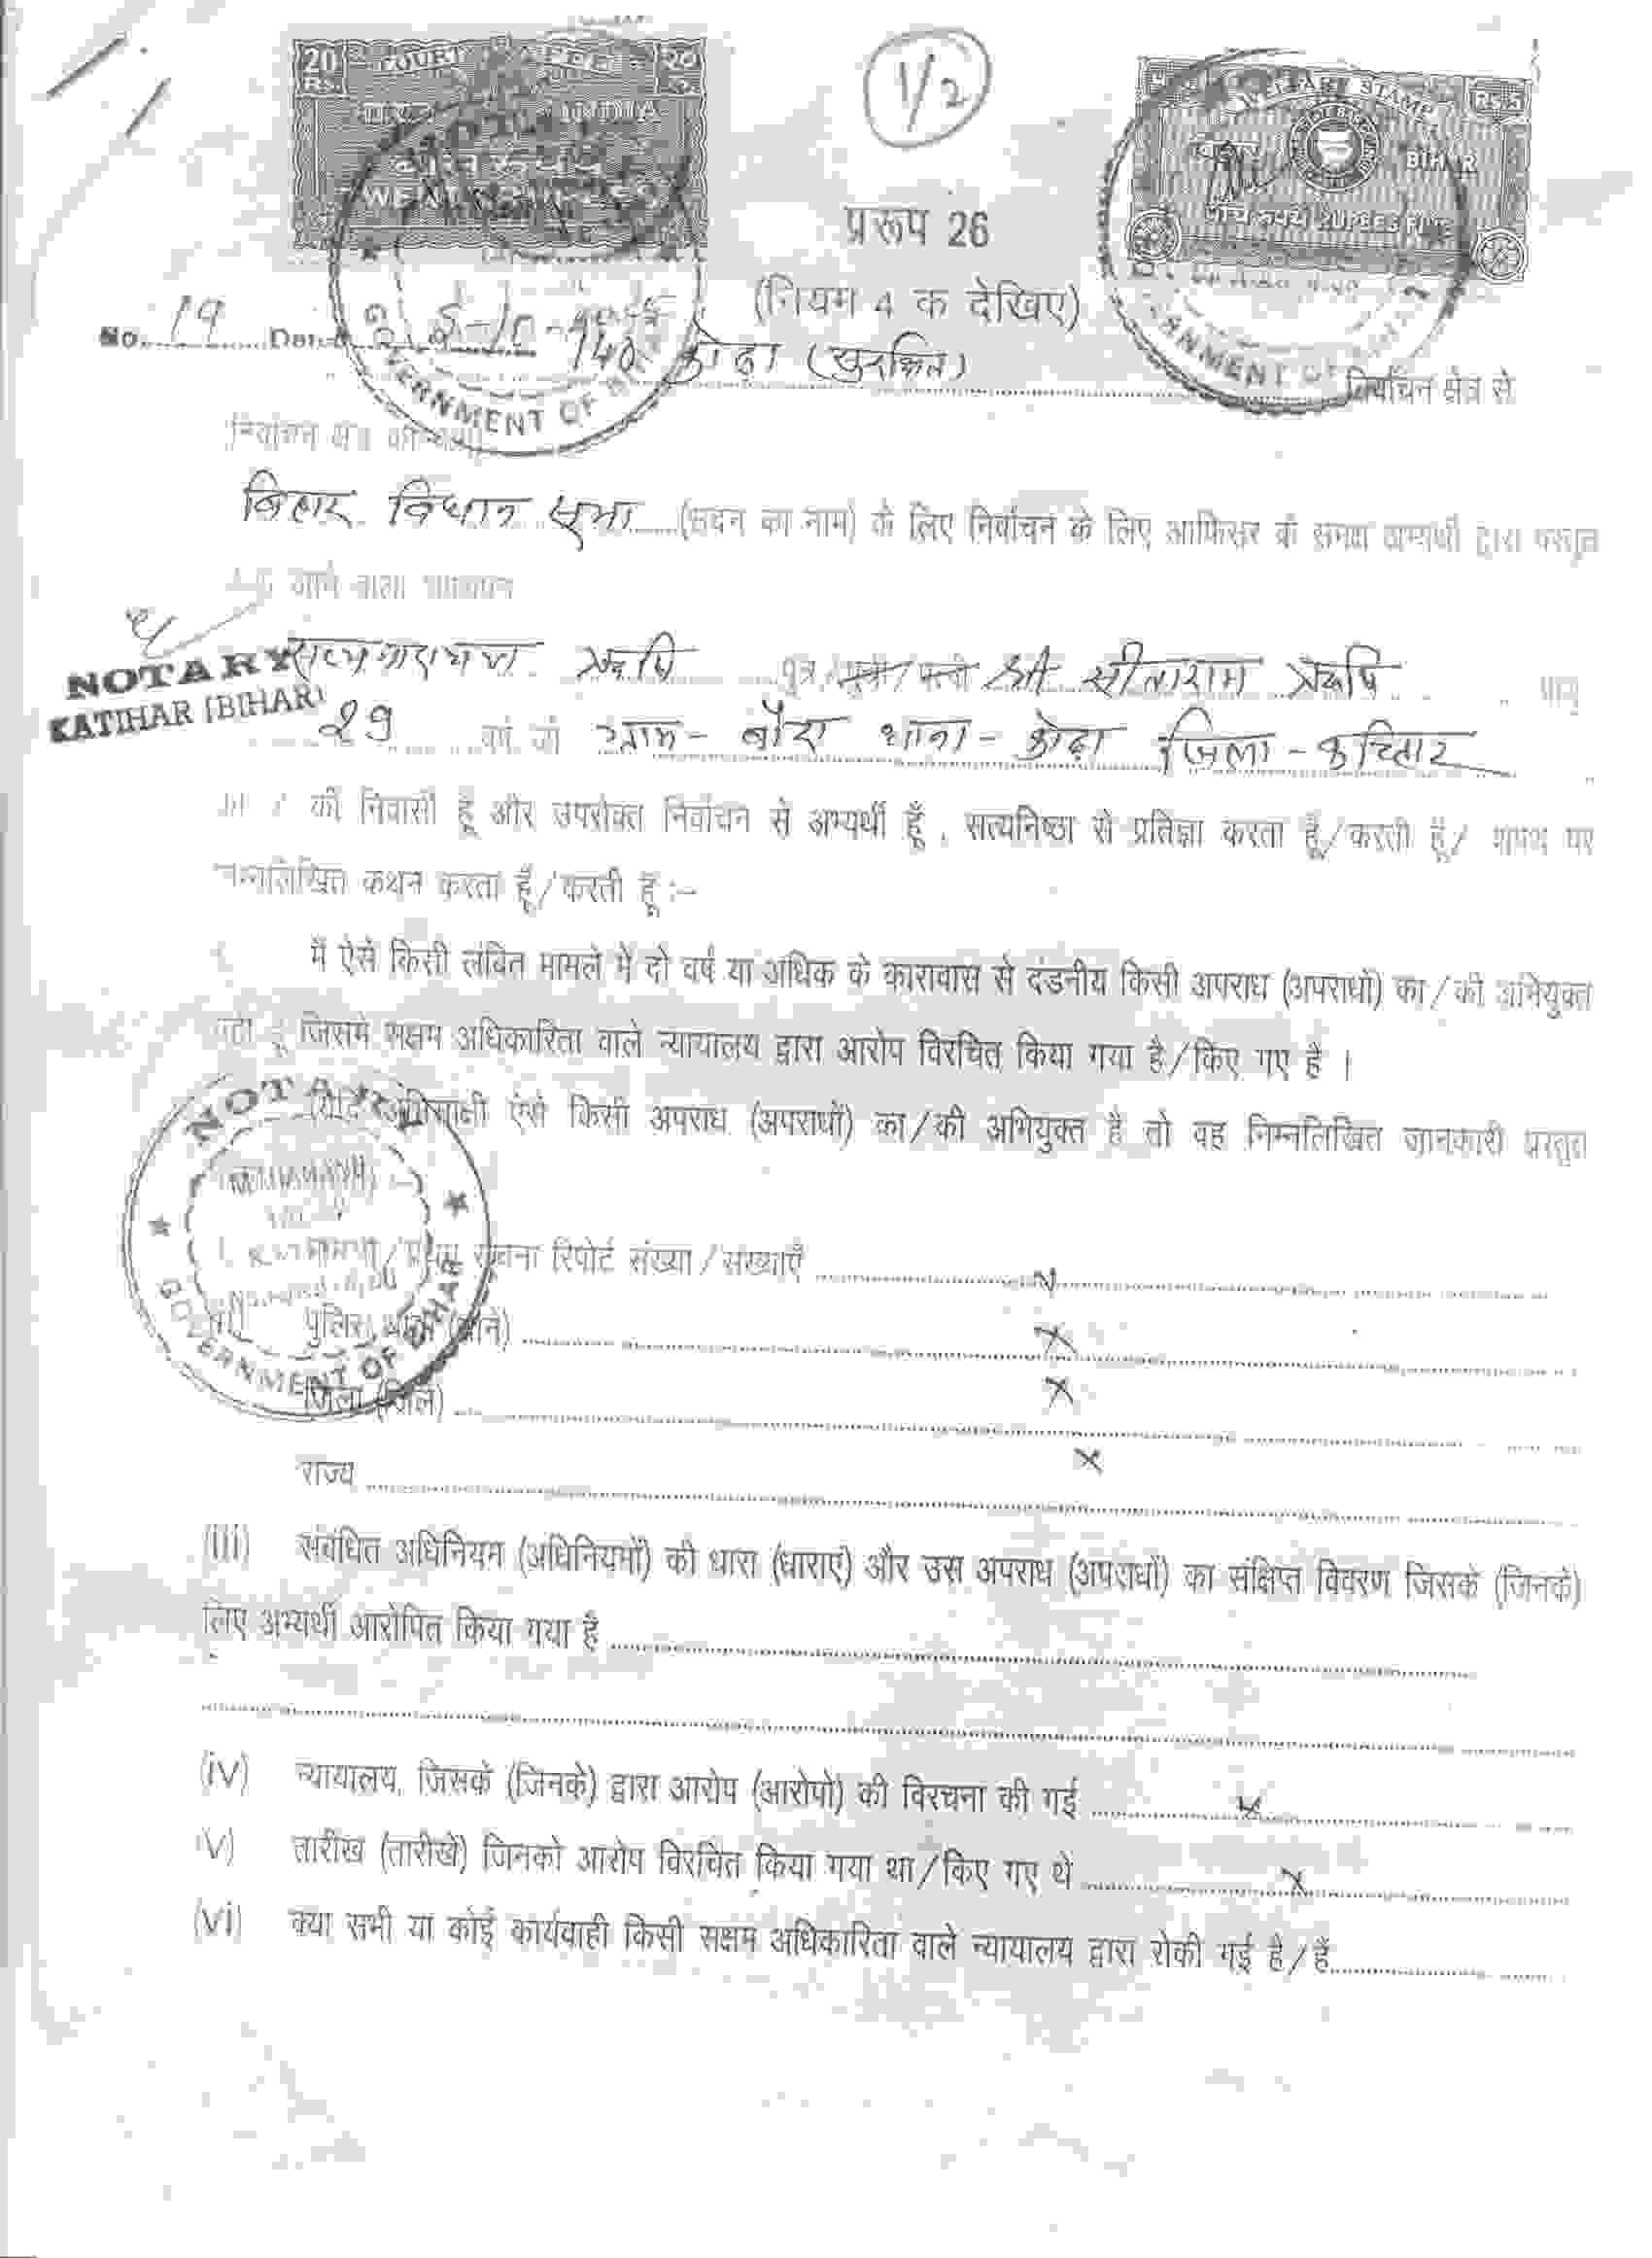 20 Rs. COURT FEE २० रु.
INDIA
1/2
WELFARE STAMP
बिहार BIHAR
पाँच रुपये RUPEES FIVE
प्ररूप 26
(नियम 4 क देखिए)
No. 19
69 कोढ़ा (सुरक्षित) निर्वाचन क्षेत्र से
GOVERNMENT OF BIHAR
निर्वाचन क्षेत्र
बिहार विधान सभा (सदन का नाम) के लिए निर्वाचन के लिए आफिसर के समक्ष अभ्यर्थी द्वारा प्रस्तुत
जाने वाला शपथपत्र
NOTARY
KATIHAR (BIHAR)
सत्यनारायण ऋषि पुत्र/पुत्री/पत्नी श्री सीताराम ऋषि
29 वर्ष जो ग्राम - बौरा थाना - कोढ़ा जिला - कटिहार
का / की निवासी हूँ और उपरोक्त निर्वाचन से अभ्यर्थी हूँ, सत्यनिष्ठा से प्रतिज्ञा करता हूँ/करती हूँ/ शपथ पर
निम्नलिखित कथन करता हूँ/करती हूँ :-
में ऐसे किसी लंबित मामले में दो वर्ष या अधिक के कारावास से दंडनीय किसी अपराध (अपराधों) का/की अभियुक्त
नहीं हूँ जिसमे सक्षम अधिकारिता वाले न्यायालय द्वारा आरोप विरचित किया गया है/किए गए है ।
यदि अभिसाक्षी ऐसे किसी अपराध (अपराधों) का/की अभियुक्त है तो वह निम्नलिखित जानकारी प्रस्तुत
NOTARY
GOVERNMENT OF BIHAR
सूचना रिपोर्ट संख्या/संख्याएँ x
पुलिस थाना (थाने) x
जिला (जिले) x
राज्य x
(iii) संबंधित अधिनियम (अधिनियमों) की धारा (धाराएं) और उस अपराध (अपराधों) का संक्षिप्त विवरण जिसके (जिनके)
लिए अभ्यर्थी आरोपित किया गया है
(iv) न्यायालय, जिसके (जिनके) द्वारा आरोप (आरोपो) की विरचना की गई x
(v) तारीख (तारीखें) जिनको आरोप विरचित किया गया था/किए गए थे x
(vi) क्या सभी या कोई कार्यवाही किसी सक्षम अधिकारिता वाले न्यायालय द्वारा रोकी गई है/हैं